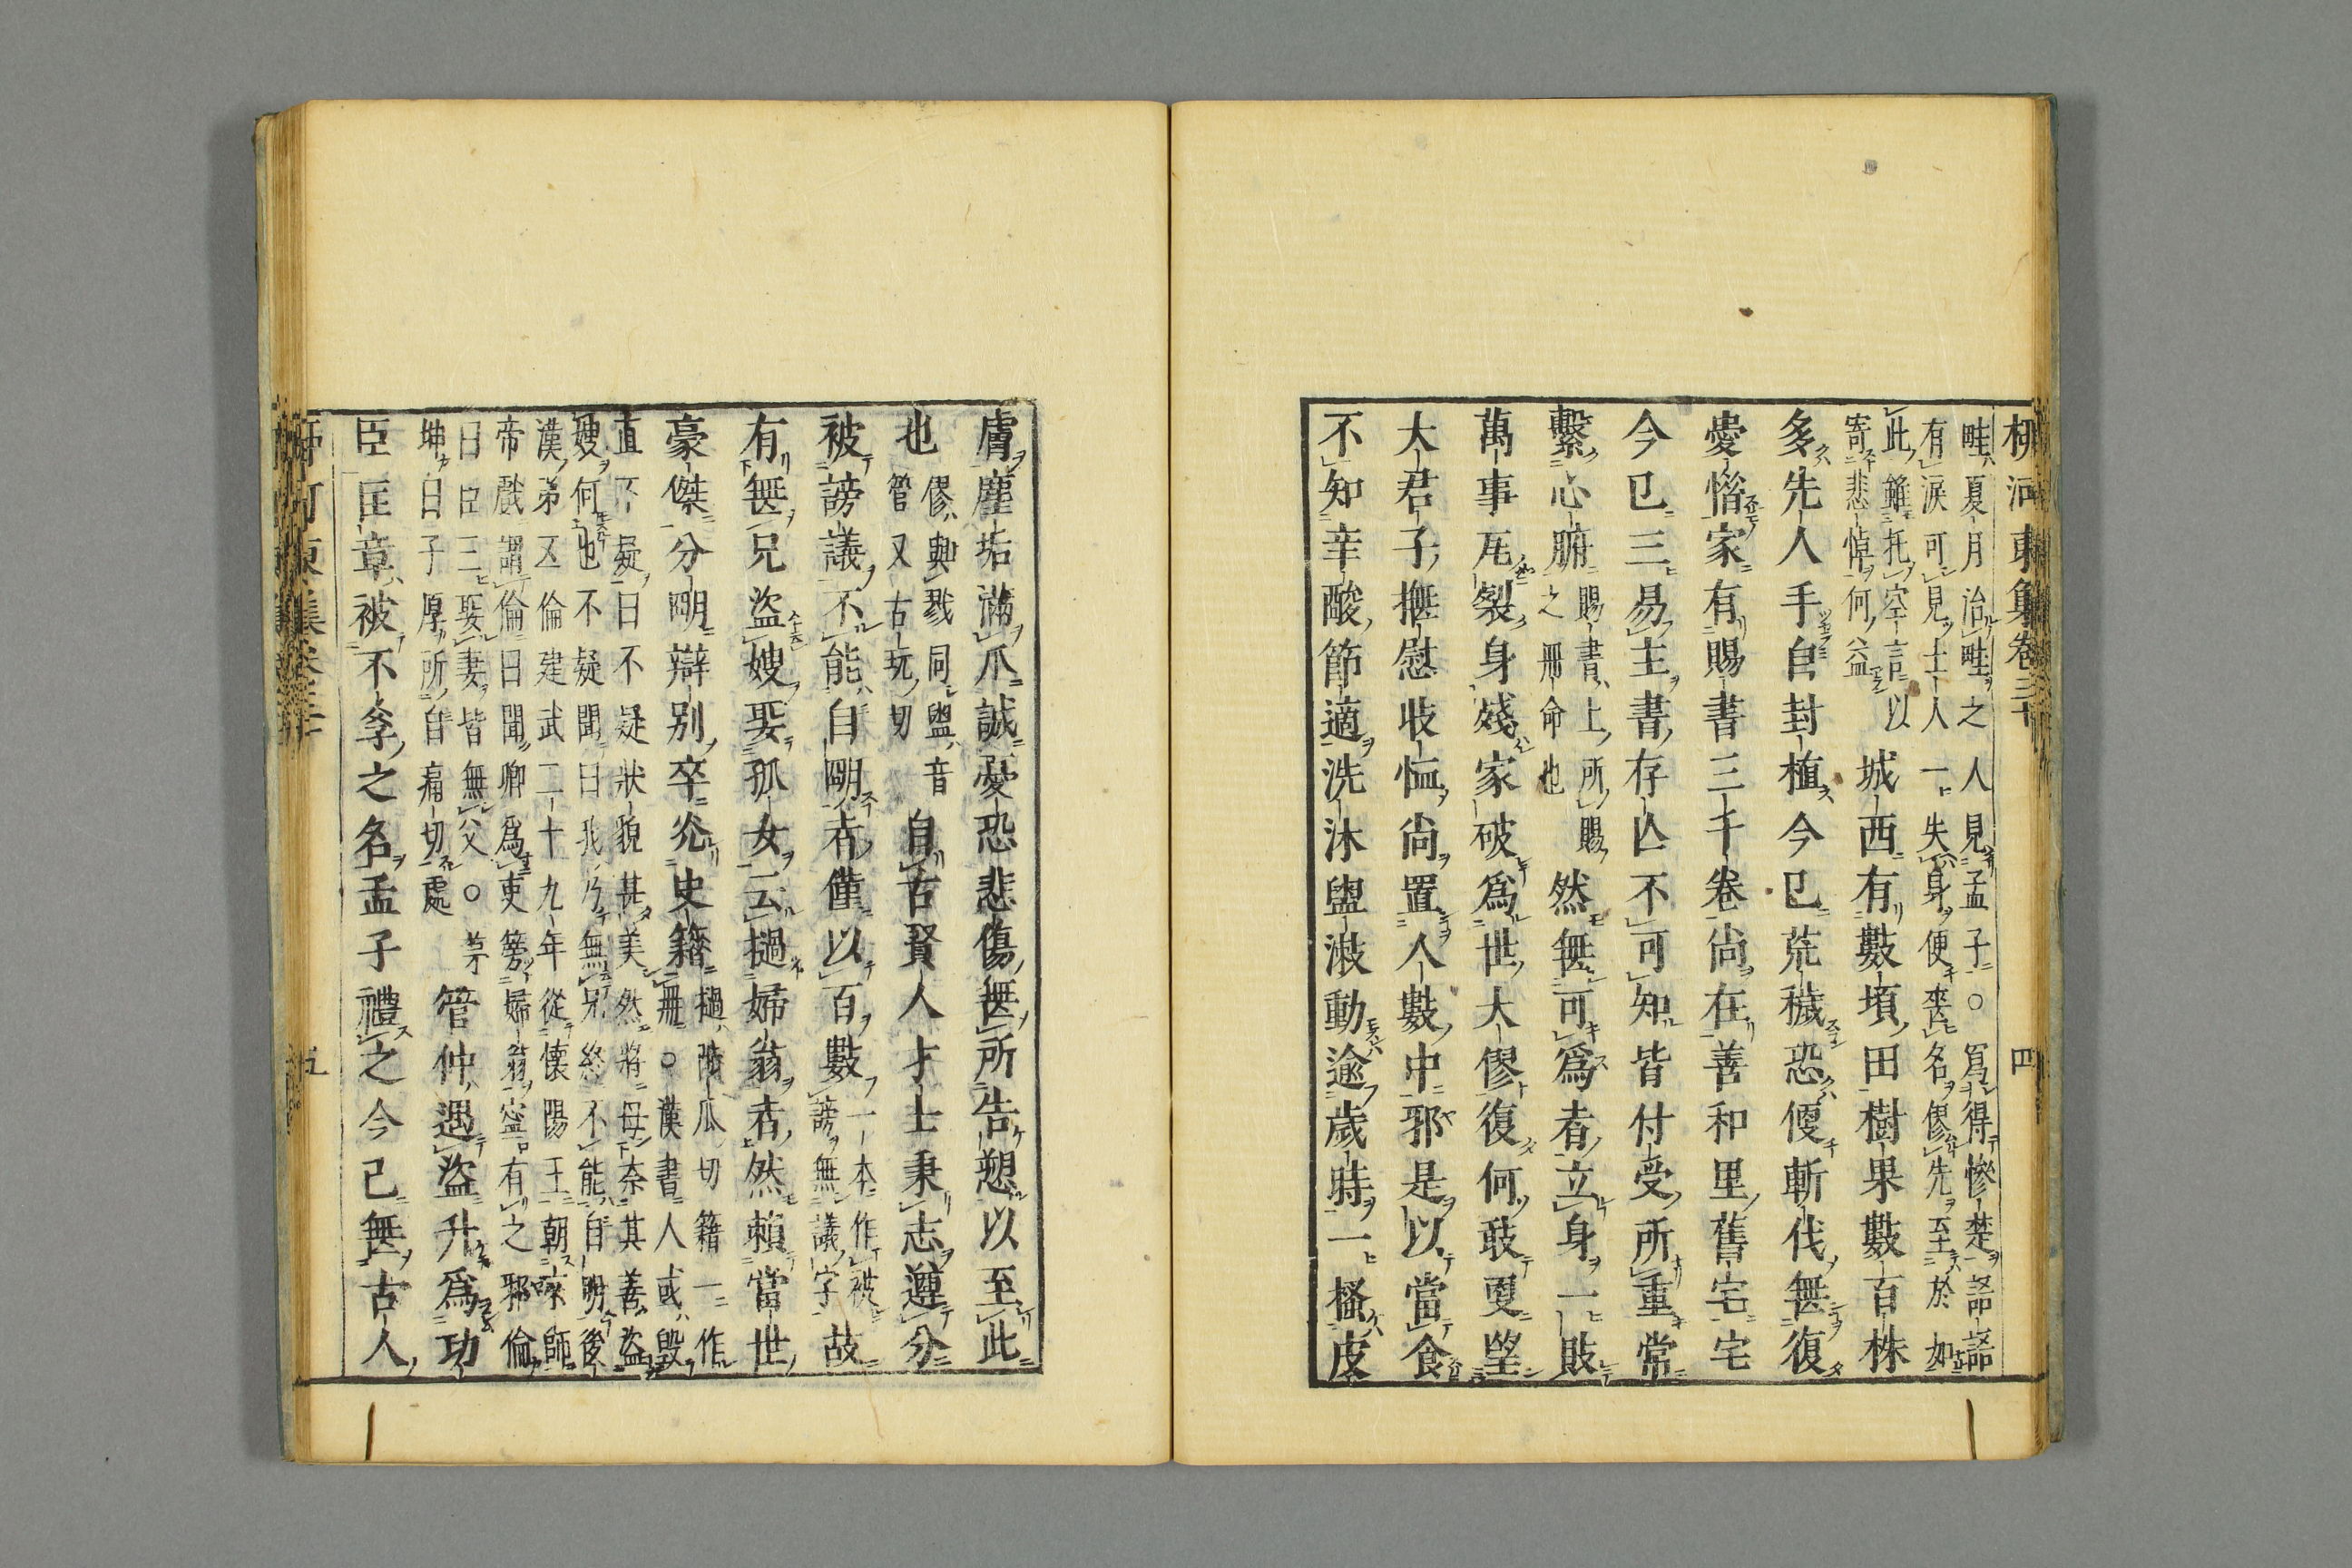 柳河東集卷三十 四
畦夏月治畦之人見孟子○寫得慘楚謡謡
有淚可見士人一失身便喪名僇先至於如
此雖托空言以
寄悲悼何益
城西有數頃田樹果數百株
多先人手自封植今已荒穢恐便斬伐無復
愛惜家有賜書三千卷尚在善和里舊宅宅
今已三易主書存亾不可知皆付受所重常
繫心腑
賜書上所賜
之冊命也
然無可爲者立身一敗
萬事瓦裂身殘家破爲世大僇復何敢更望
大君子撫慰收恤尚置人數中邪是以當食
不知辛酸節適洗沐盥漱動逾歲時一搔皮
膚塵垢滿爪誠憂恐悲傷無所告愬以至此
也
僇與戮同盥音
管又古玩切
自古賢人才士秉志遵分
被謗議不能自明者僅以百數
一本作被
謗無議字
故
有無兄盜嫂娶孤女云撾婦翁者然賴當世
豪傑分明辯别卒光史籍
撾陟瓜切籍一作
冊○漢書人或毀
直不疑曰不疑狀貌甚美然將毋奈其善盜
嫂何也不疑聞曰我乃無兄終不能自明後
漢弟五倫建武二十九年從懷陽王朝京師
帝戲謂倫曰聞卿爲吏篣婦翁寧有之邪倫
曰臣三娶妻皆無父○茅
坤曰子厚所自痛切處
管仲遇盜升爲功
臣匡章被不孝之名孟子禮之今已無古人
柳河東集卷三十 五